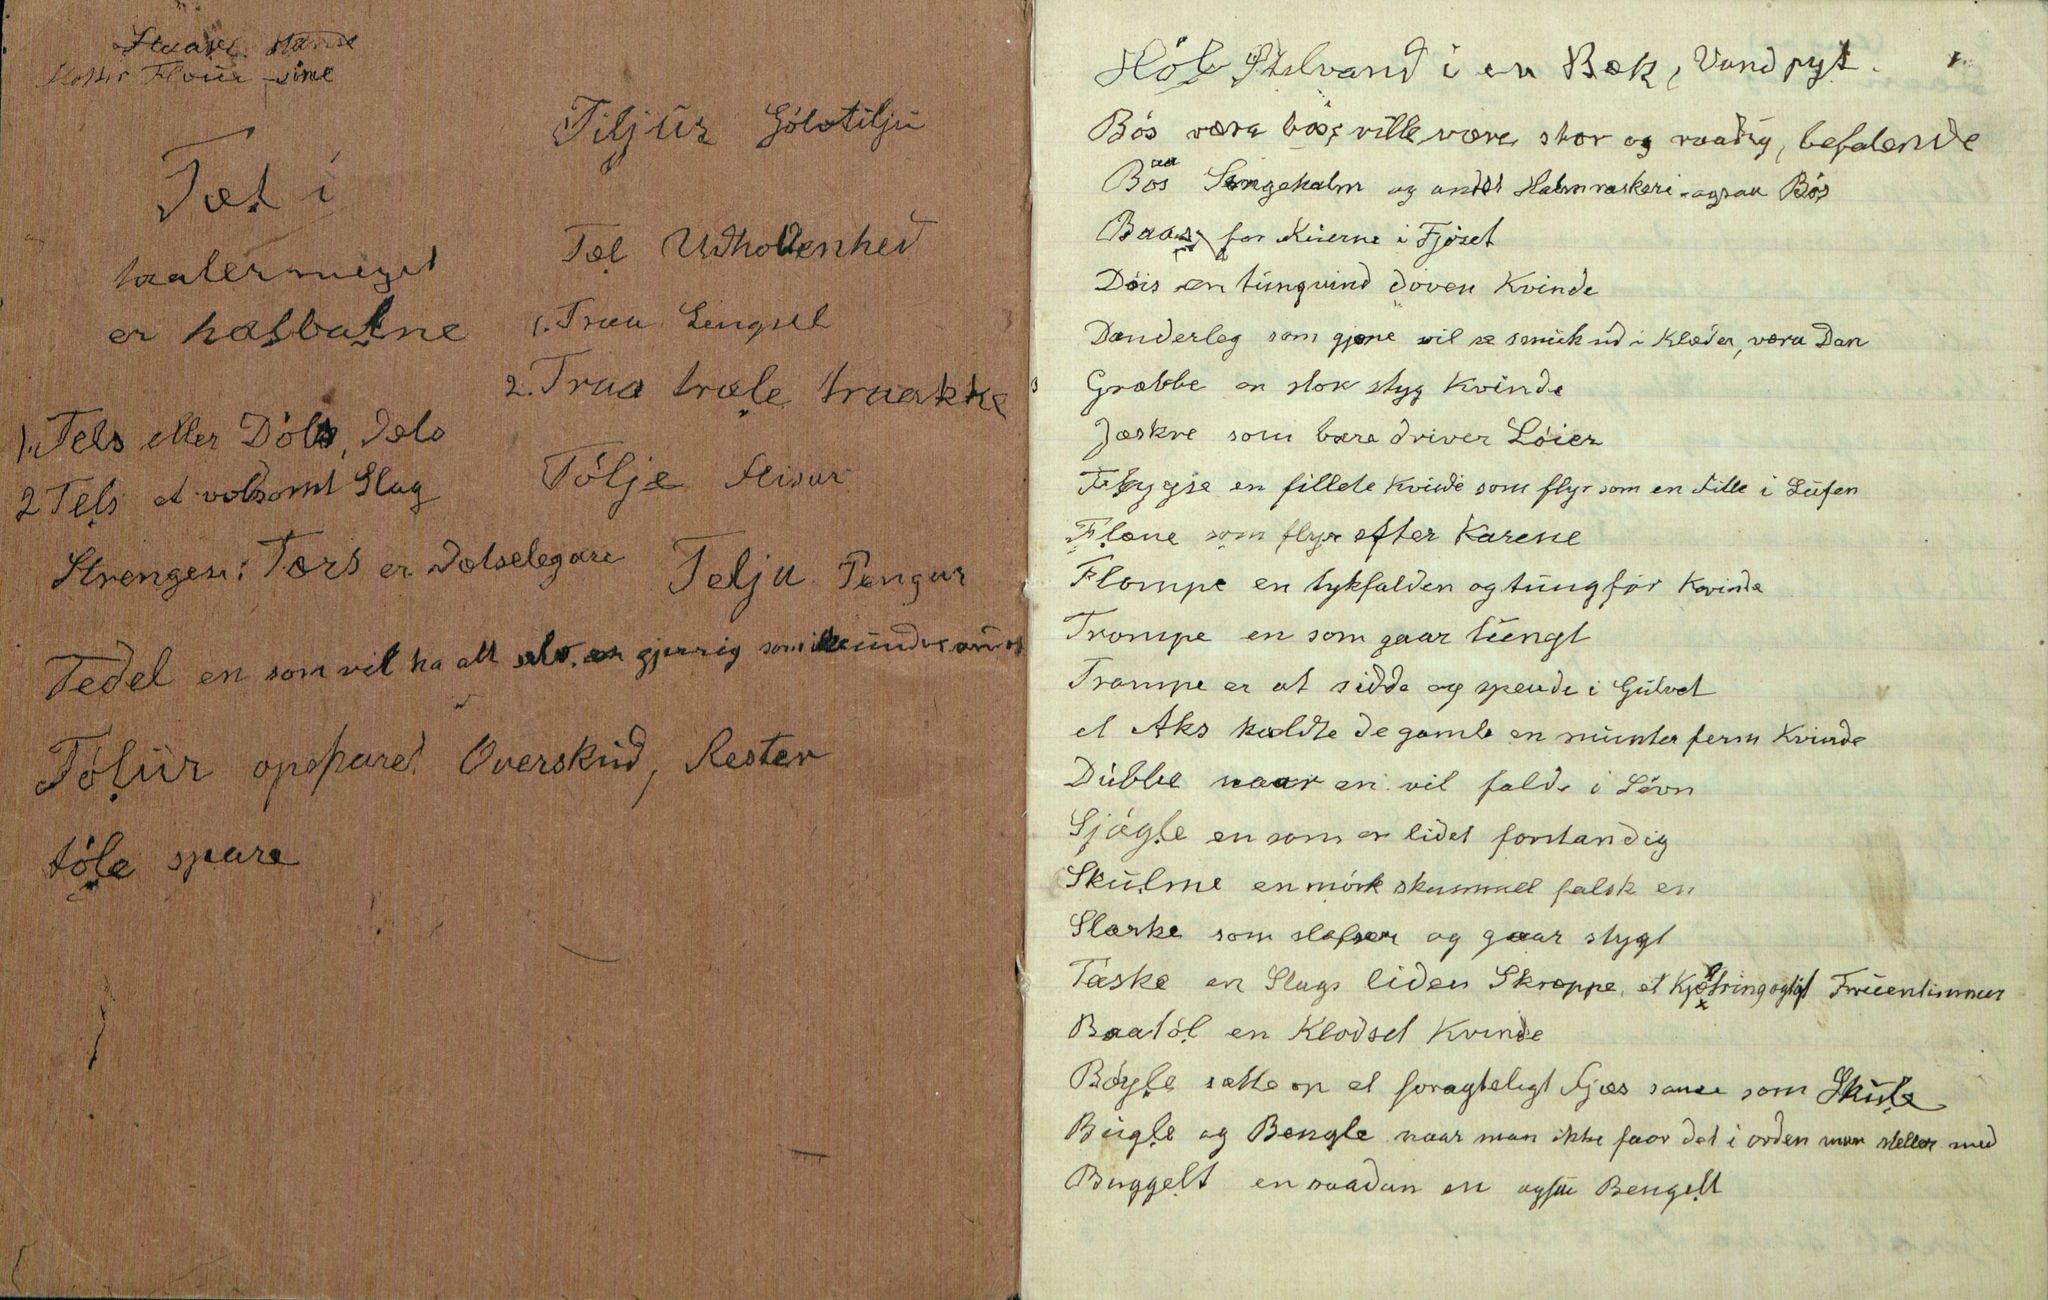 Flour
Tiljür Gólvtiljü
Tæt i
taaler meget
er hæsbalne
Tæl Udholdenhed
1. Traa Lengsel
2. Traa træle traakke
1. Tels eller Döls, Dæls
2 Tels et voldsomt Slag
Tólje Flisur
Strengen: Tærs er Dætselegare
Telja Pengar
Tedel en som vil ha alt selv, en gjerrig som ikke ünder
Tólür opsparet Overskud, Rester
tóle spare
Hól Stilvand i en Bæk, Vandpyt.
Bós væra bós, ville være stor og raadig, befalende
Bós Sengehalm og andet Halmraskeri ogsaa Bós
Baas for Kúerne i Fjóset
Dóis en tüngvind doven Kvinde
Danderleg som gjerne vil se smük üd i Klæder, væra Dan
Græbbe en stor styg Kvinde
Jæskre som bare driver Lóier
Flygse en fillete Kvinde som flyr som en Fille i Lüften
Flæne som flyr efter Karene
Flompe en tykfalden og tüngför Kvinde
Trompe en som gaar tüngt
Trampe er at sidde og spende i Gülvet
et Aks kaldte de gamle en münter ferm Kvinde
Dübbe naar en vil falde i Sövn
Sjógle en som er lidet forstandig
Skülme en mörk skummel falsk en
Slarke som slafser og gaar stygt
Tæske en Slags liden Skræppe, et Kjæftringagtigt Früentimmer
Baatól en Klodset Kvinde
Bógle sætte op et foragteligt Fjæs samme som Sküle
Bügle og Bengle naar man ikke faar det i orden man steller med
Buggelt en saadan en ogsaa Bengelt